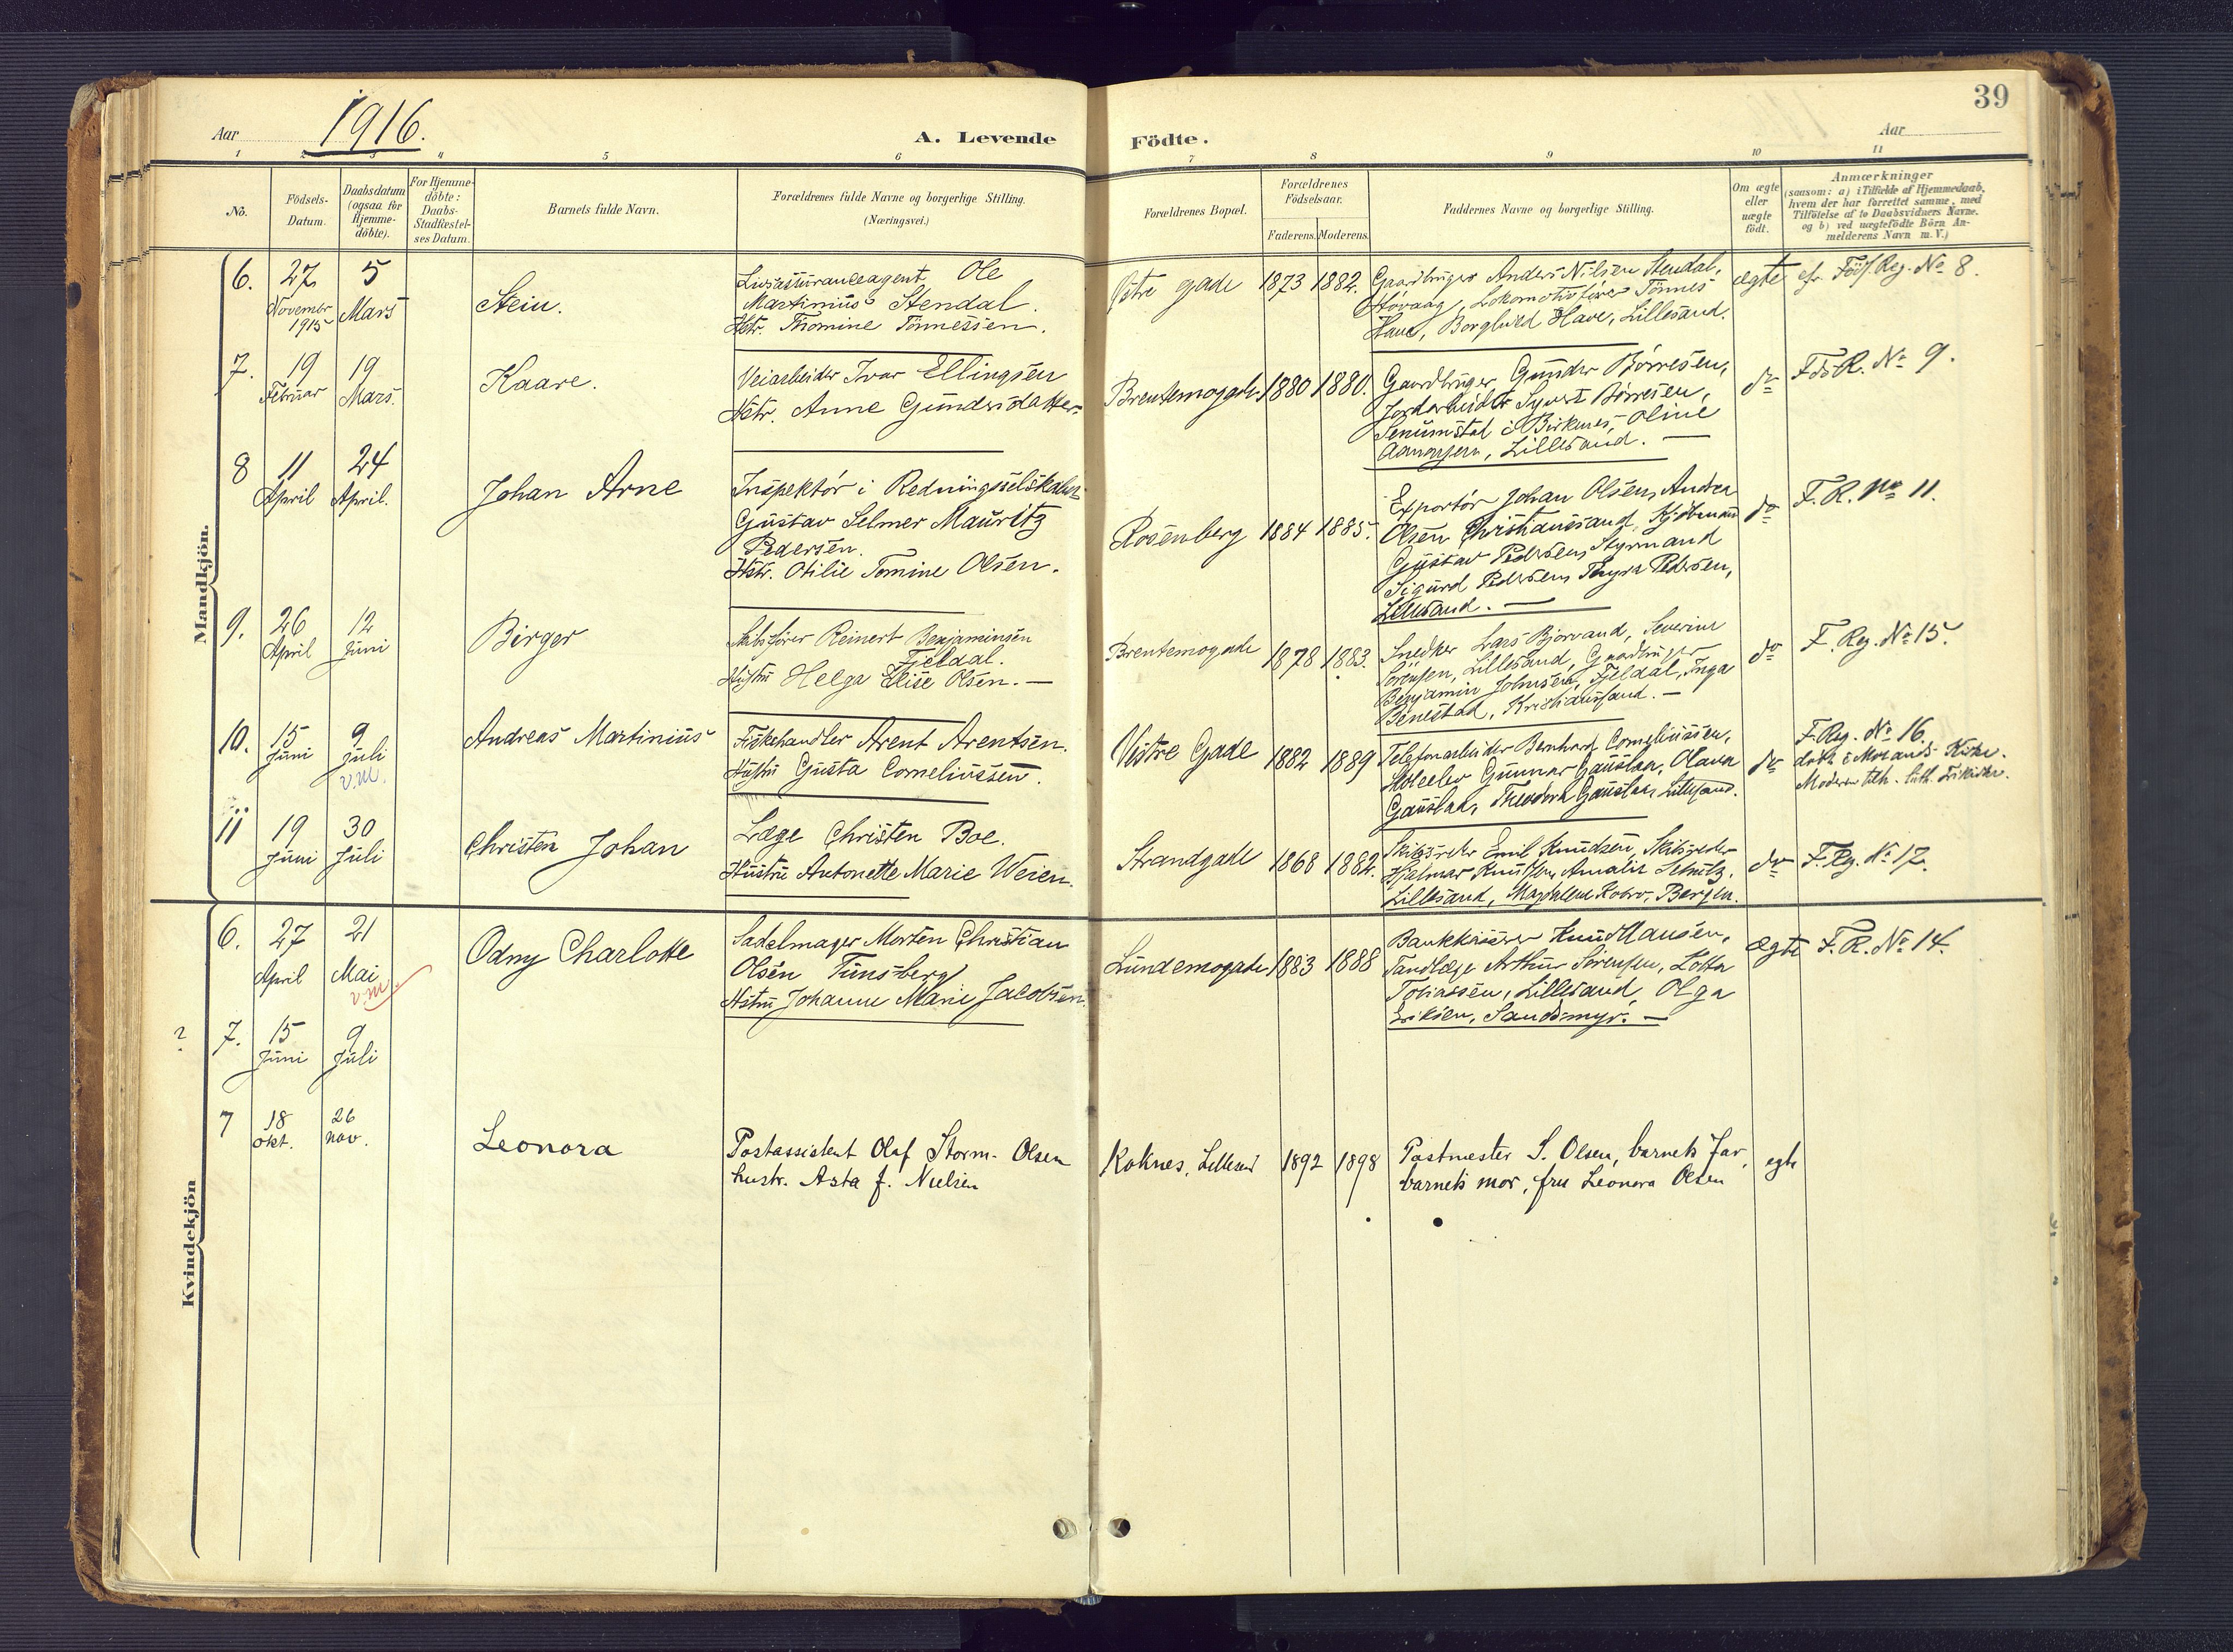 39
Aar 1916.
A. Levende
Födte.
Aar
1 2 3 4 5 6
7 8 9 10 11
No.
Födsels-
Datum.
Daabsdatum
(ogsaa for
Hjemme-
döbte).
For Hjemme-
döbte:
Daabs-
Stadfæstel-
ses Datum.
Barnets fulde Navn.
Forældrenes fulde Navne og borgerlige Stilling.
(Næringsvei.)
Forældrenes Bopæl.
Forældrenes
Födselsaar.
Faderens. Moderens.
Faddernes Navne og borgerlige Stilling.
Om ægte
eller
uægte
födt.
Anmærkninger
(saasom: a) i Tilfælde af Hjemmedaab,
hvem der har forrettet samme, med
Tilföielse af to Daabsvidners Navne.
og b) ved uægtefödte Börn An-
melderens Navn m. V.)
Mandkjön.
6.
27
Novembr
1915
5
Mars
Stein.
Livsassuranceagent Ole
Martinius Stendal.
Hstr. Thomine Tönnessen.
Østre gade
1873
1882.
Gaardbruger Anders Nilsen Stendal,
Høvaag, Lokomotivfører Tönnes
Have, Borghild Have, Lillesand.
ægte
cfr Föds. Reg. No 8.
7.
19
Februar
19
Mars.
Kaare.
Veiarbeider Ivar Ellingsen
Hstr. Anne Gundersdatter
Brentemogade
1880
1880.
Gaardbruger Gunder Børresen,
Jordarbeider Syvert Børresen,
Senumstad i Birkenes, Oline
Aanonsen, Lillesand.
do
FdsR. No 9.
8
11
April
24
April.
Johan Arne
Inspektör i Redningsselskabet
Gustav Selmer Mauritz
Pedersen.
Hstr. Otilie Tomine Olsen.
Rosenberg
1884
1885.
Exportör Johan Olsen, Andrea
Olsen Christianssand, Kjöbmand
Gustav Pedersen, Styrmand
Sigurd Pedersen, Thyra Pedersen,
Lillesand.
do
F. R. No 11.
9.
26
April
12
Juni
Birger
Skibsförer Reinert Benjaminsen
Fjeldal.
Hustru Helga Elise Olsen.
Brentemogade
1878
1883.
Snedker Lars Bjorvand, Severine
Sörensen, Lillesand, Gaardbruger
Benjamin Johnsen, Fjeldal, Inga
Benestad, Kristianssand.
do
F. Reg. No 15.
10.
15
Juni
9
Juli
v.m.
Andreas Martinius
Fiskehandler Arent Arentsen.
Hustru Gusta Corneliussen.
Vestre Gade
1882
1889
Telefonarbeider Bernhard Corneliussen,
Gunnar Gauslaa, Olava
Gauslaa, Theodora Gauslaa, Lillesand.
do
F. Reg. No 16.
døbt i Kirke.
Moderen tilh. luth. Frikirke.
11
19
Juni
30
Juli
Christen Johan
Læge Christen Boe.
Hustru Antonette Marie Weien.
Strandgade
1868
1882.
Skibsreder Emil Knudsen, Skibsreder
Hjalmar Knudsen, Amalie Schultz,
Lillesand, Magdalene Bergen.
do
F. Reg. No 17.
Kvindekjön
6.
27
April
21
Mai
v.m.
Odny Charlotte
Sadelmager Morten Christian
Olsen Tunsberg
Hstru Johanne Marie Jacobsen.
Lundemogade
1883
1888
Bankkasserer Knud Hansen,
Tandlæge Arthur Sørensen, Lotta
Tobiassen, Lillesand, Olga
Eriksen, Sandsmyr.
ægte
F. R. No 14.
?
7.
15
Juni
9
Juli
7
18
okt.
26
nov.
Leonora
Postassistent Olaf Storm-Olsen
hustr. Asta f. Nielsen
Koknes, Lillesand
1892
1898
Postmester S. Olsen, barnets far,
barnets mor, fru Leonora Olsen
egte